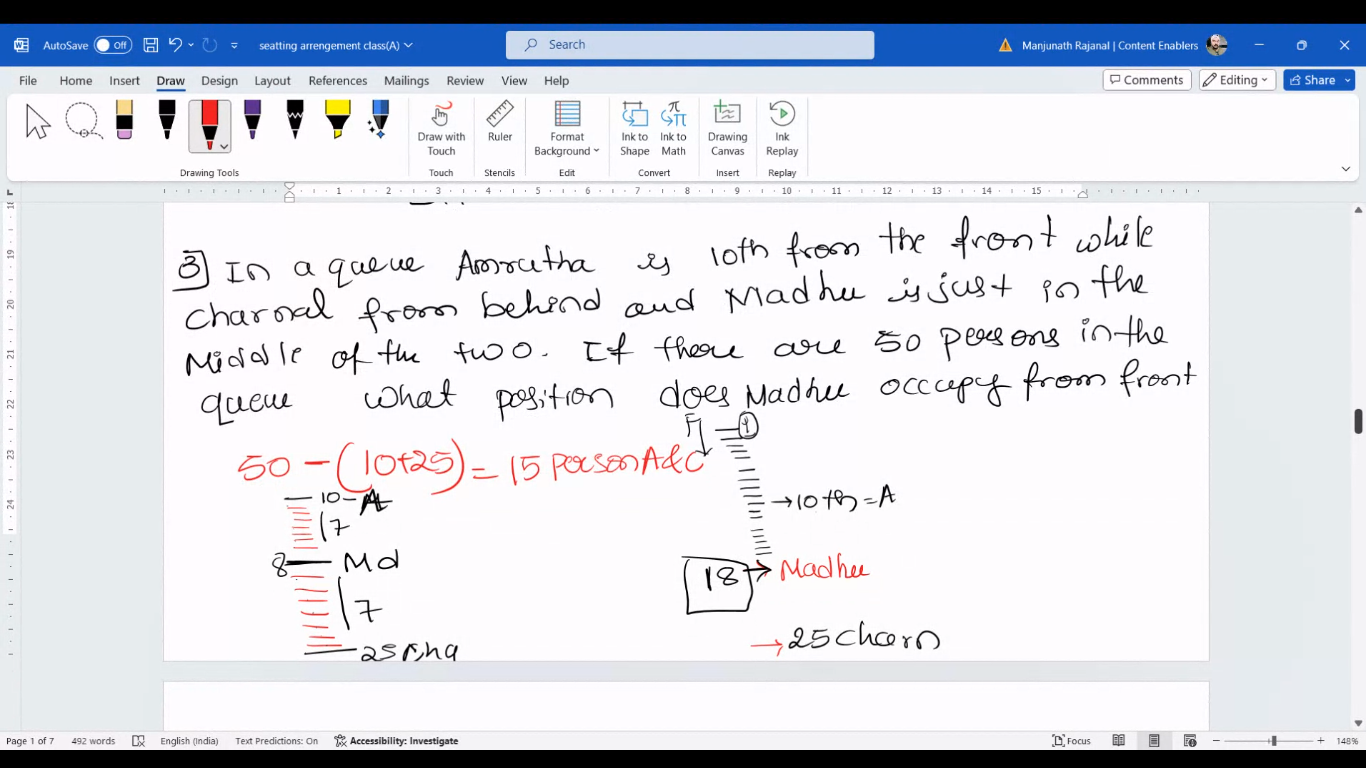 AutoSave Off seatting arrengement class(A) Search Manjunath Rajanal | Content Enablers
File Home Insert Draw Design Layout References Mailings Review View Help Comments Editing Share
Draw with Touch Ruler Format Background Ink to Shape Ink to Math Drawing Canvas Ink Replay
Drawing Tools Touch Stencils Edit Convert Insert Replay
1 2 3 4 5 6 7 8 9 10 11 12 13 14 15
3] In a queue Amrutha is 10th from the front while
charnal from behind and Madhu is just in the
Middle of the two. If there are 50 persons in the
queue what position does Madhu occupy from front
50 - (10+25) = 15 person A & C
F 1
10 - A
7
→ 10th = A
8 Md
18 → Madhu
7
25 Cha
→ 25 Charn
Page 1 of 7 492 words English (India) Text Predictions: On Accessibility: Investigate Focus 148%